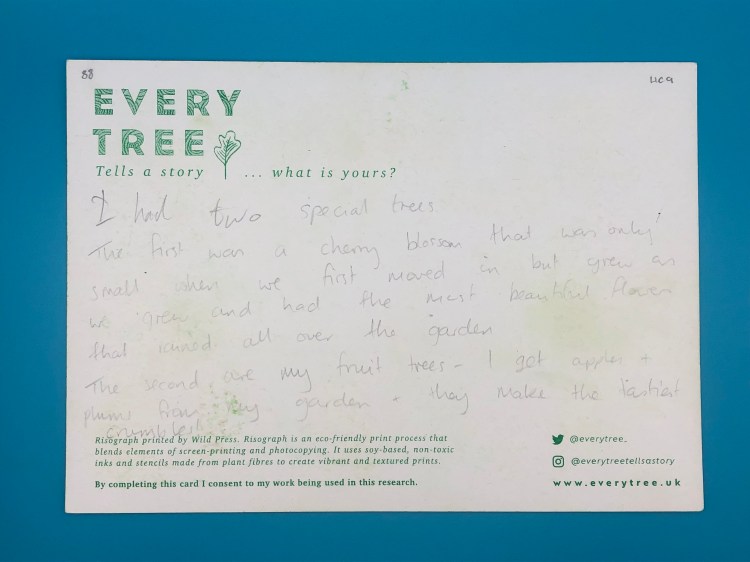 88
UCA
EVERY
TREE
Tells a story ... what is yours?
I had two special trees
The first was a cherry blossom that was only
small when we first moved in but grew as
we grew and had the most beautiful flowers
that rained all over the garden
The second are my fruit trees - I got apples +
plums from my garden - they make the tastiest
crumbles!
Risograph printed by Wild Press. Risograph is an eco-friendly print process that
blends elements of screen-printing and photocopying. It uses soy-based, non-toxic
inks and stencils made from plant fibres to create vibrant and textured prints.
By completing this card I consent to my work being used in this research.
@everytree_
@everytreetellsastory
www.everytree.uk